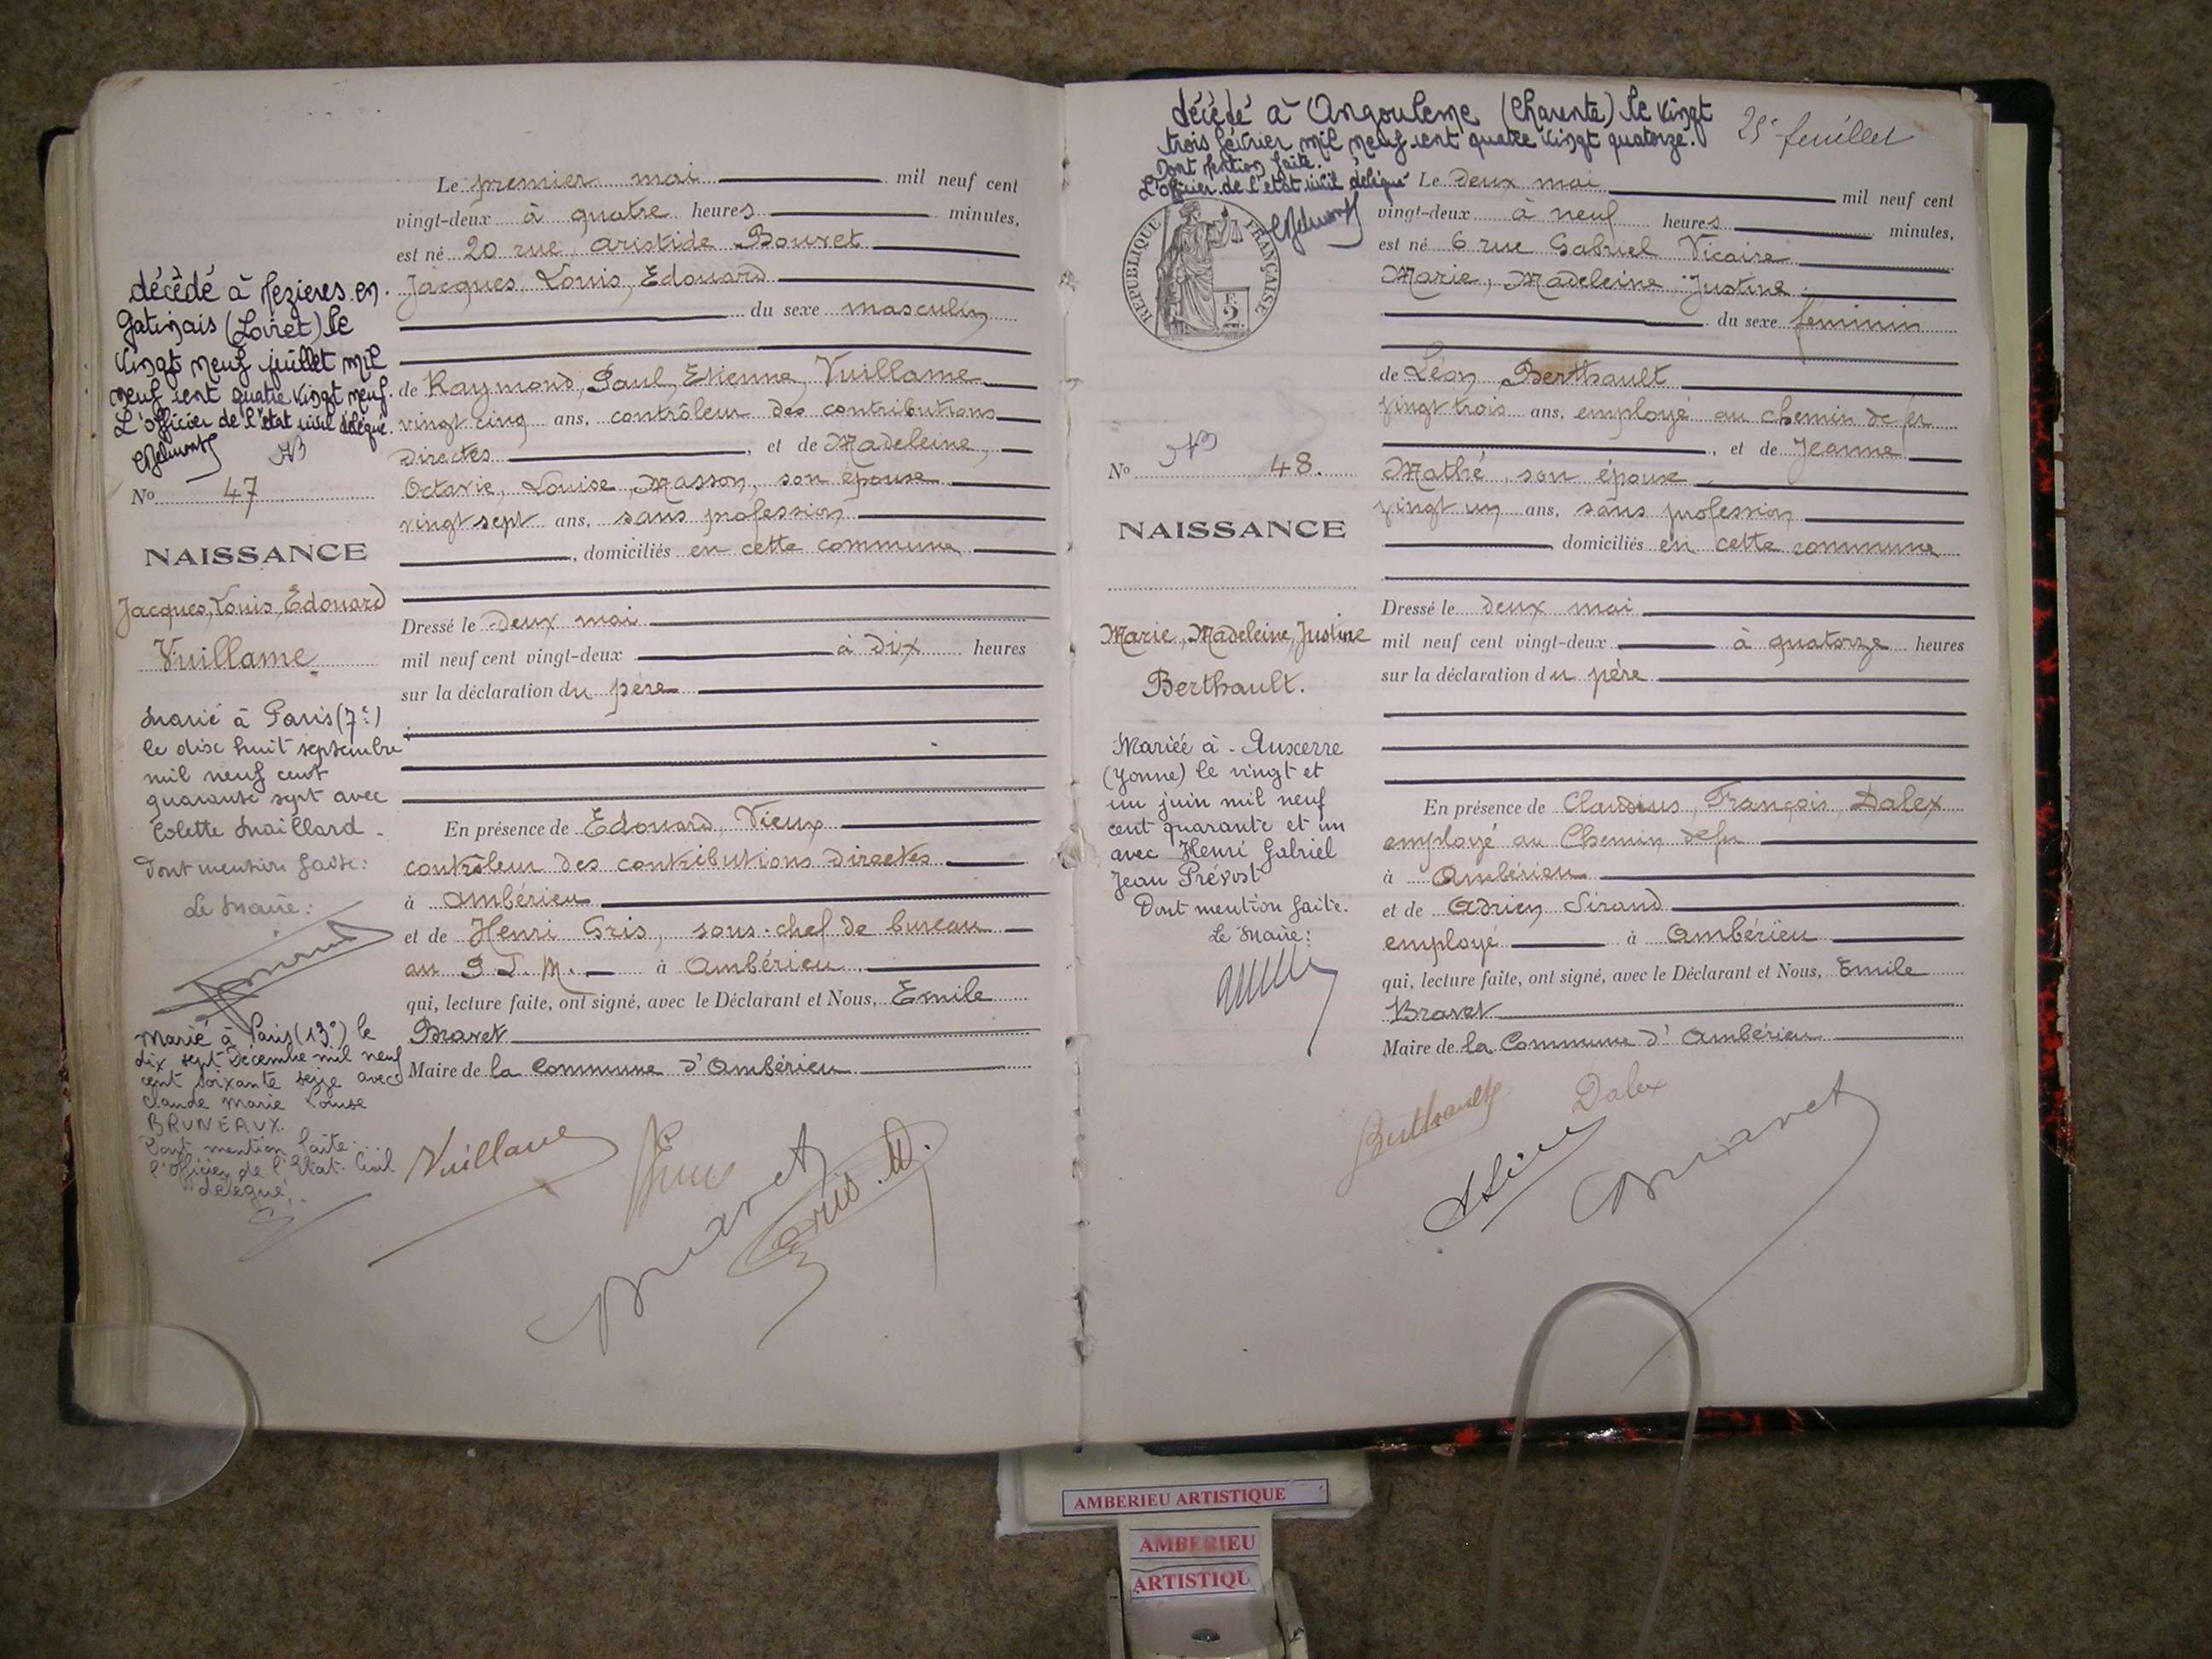 Le premier mai mil neuf cent
vingt-deux à quatre heures minutes,
est né 20 rue Aristide Bouvet
Jacques, Louis, Edouard
du sexe masculin
de Raymond, Paul, Etienne, Vuillame
vingt cinq ans, contrôleur des contributions
directes , et de Madeleine,
Octavie, Louise, Masson, son épouse
vingt sept ans, sans profession
, domiciliés en cette commune
Dressé le deux mai
mil neuf cent vingt-deux à dix heures
sur la déclaration du père
En présence de Edouard, Vieux
contrôleur des contributions directes
à Ambérieu
et de Henri Gris, sous-chef de bureau
au P.L.M. à Ambérieu
qui, lecture faite, ont signé, avec le Déclarant et Nous, Emile
Bravet
Maire de la Commune d'Ambérieu
Vuillame
Bravet
Gris
décédé à Mezieres en
Gatinais (Loiret) le
vingt neuf juillet mil
neuf cent quatre vingt neuf.
L'officier de l'état civil délégué
No 47
NAISSANCE
Jacques, Louis, Edouard
Vuillame
Marié à Paris (7e)
le dix huit septembre
mil neuf cent
quarante sept avec
Colette Maillard.
Dont mention faite:
Le Maire:
Marié à Paris (13e) le
dix sept Decembre mil neuf
cent soixante seize avec
Claude Marie Louise
BRUNEAUX.
Dont mention faite
l'Officier de l'Etat-Civil
délégué,
décédé à Angouleme (Charente) le vingt
trois février mil neuf cent quatre vingt quatorze.
Dont mention faite.
L'officier de l'état civil délégué
25e feuillet
RÉPUBLIQUE FRANÇAISE
2 F.
Le deux mai mil neuf cent
vingt-deux à neuf heures minutes,
est né 6 rue Gabriel Vicaire
Marie, Madeleine, Justine
du sexe féminin
de Léon Berthault
vingt trois ans, employé au chemin de fer
, et de Jeanne
Mathé, son épouse
vingt un ans, sans profession
domiciliés en cette commune
Dressé le deux mai
mil neuf cent vingt-deux à quatorze heures
sur la déclaration du père
En présence de Claudius, François, Dalex
employé au Chemin defer
à Ambérieu
et de Adrien Sirand
employé à Ambérieu
qui, lecture faite, ont signé, avec le Déclarant et Nous, Emile
Bravet
Maire de la Commune d'Ambérieu
Berthault
Dalex
Bravet
No 48.
NAISSANCE
Marie, Madeleine, Justine
Berthault.
Mariée à Auxerre
(Yonne) le vingt et
un juin mil neuf
cent quarante et un
avec Henri Gabriel
Jean Prévost
Dont mention faite.
Le Maire:
AMBERIEU ARTISTIQUE
AMBERIEU
ARTISTIQU